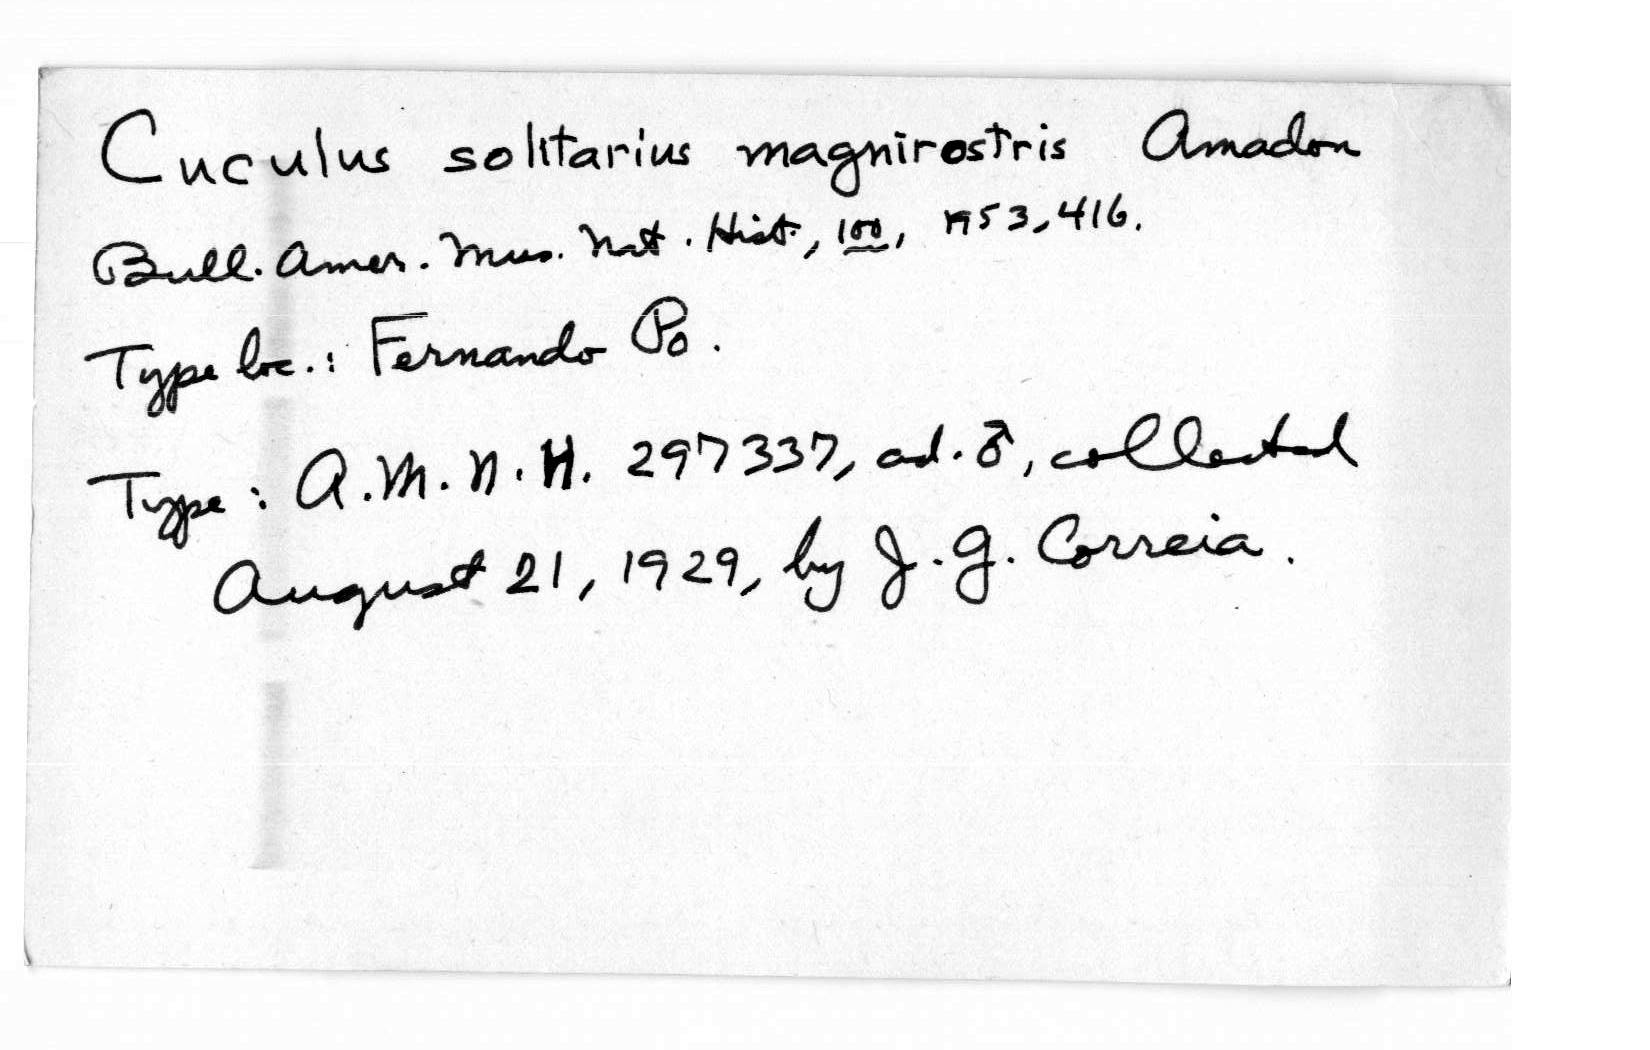 Cuculus solitarius magnirostris Amadon
Bull. Amer. Mus. Nat. Hist., 100, 1953, 416.
Type loc.: Fernando Po.
Type: A.M.N.H. 297337, ad. ♂, collected
August 21, 1929, by J. G. Correia.